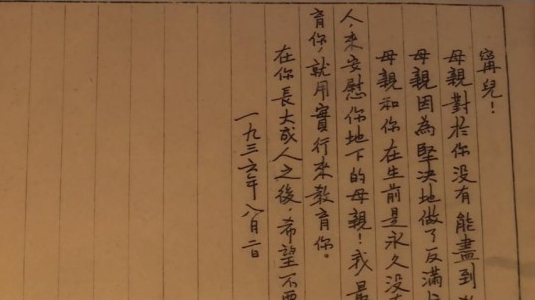 甯兒！
母親對於你没有能盡到
母親因為堅决地做了反滿
母親和你在生前是永久没
人，來安慰你地下的母親！我最
育你，就用實行來教育你。
在你長大成人之後，希望不要
一九三六年八月二日